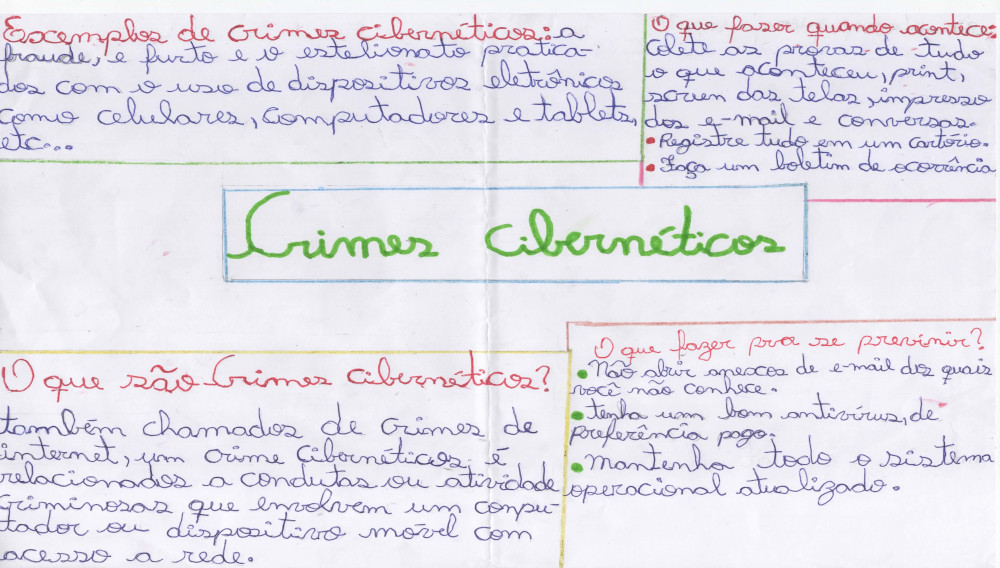 Exemplos de crimes cibernéticos: a
fraude, é furto e o estelionato pratica-
dos com o uso de dispositivos eletrônicos
como celulares, computadores e tablets,
etc...
O que fazer quando acontece:
Colete as provas de tudo
o que aconteceu, print,
scrien das telas, impresso
dos e-mail e conversas.
• Registre tudo em um cartório.
• Faça um boletim de ocorrência
Crimes Cibernéticos
O que são Crimes cibernéticos?
também chamados de crimes de
internet, um crime Cibernéticos é
relacionados a condutas ou atividade
criminosas que envolvem um compu-
tador ou dispositivo móvel com
acesso a rede.
O que fazer pra se previnir?
• Não abrir anexos de e-mail dos quais
você não conhece.
• tenha um bom antivírus, de
preferência pago.
• mantenha todo o sistema
operacional atualizado.